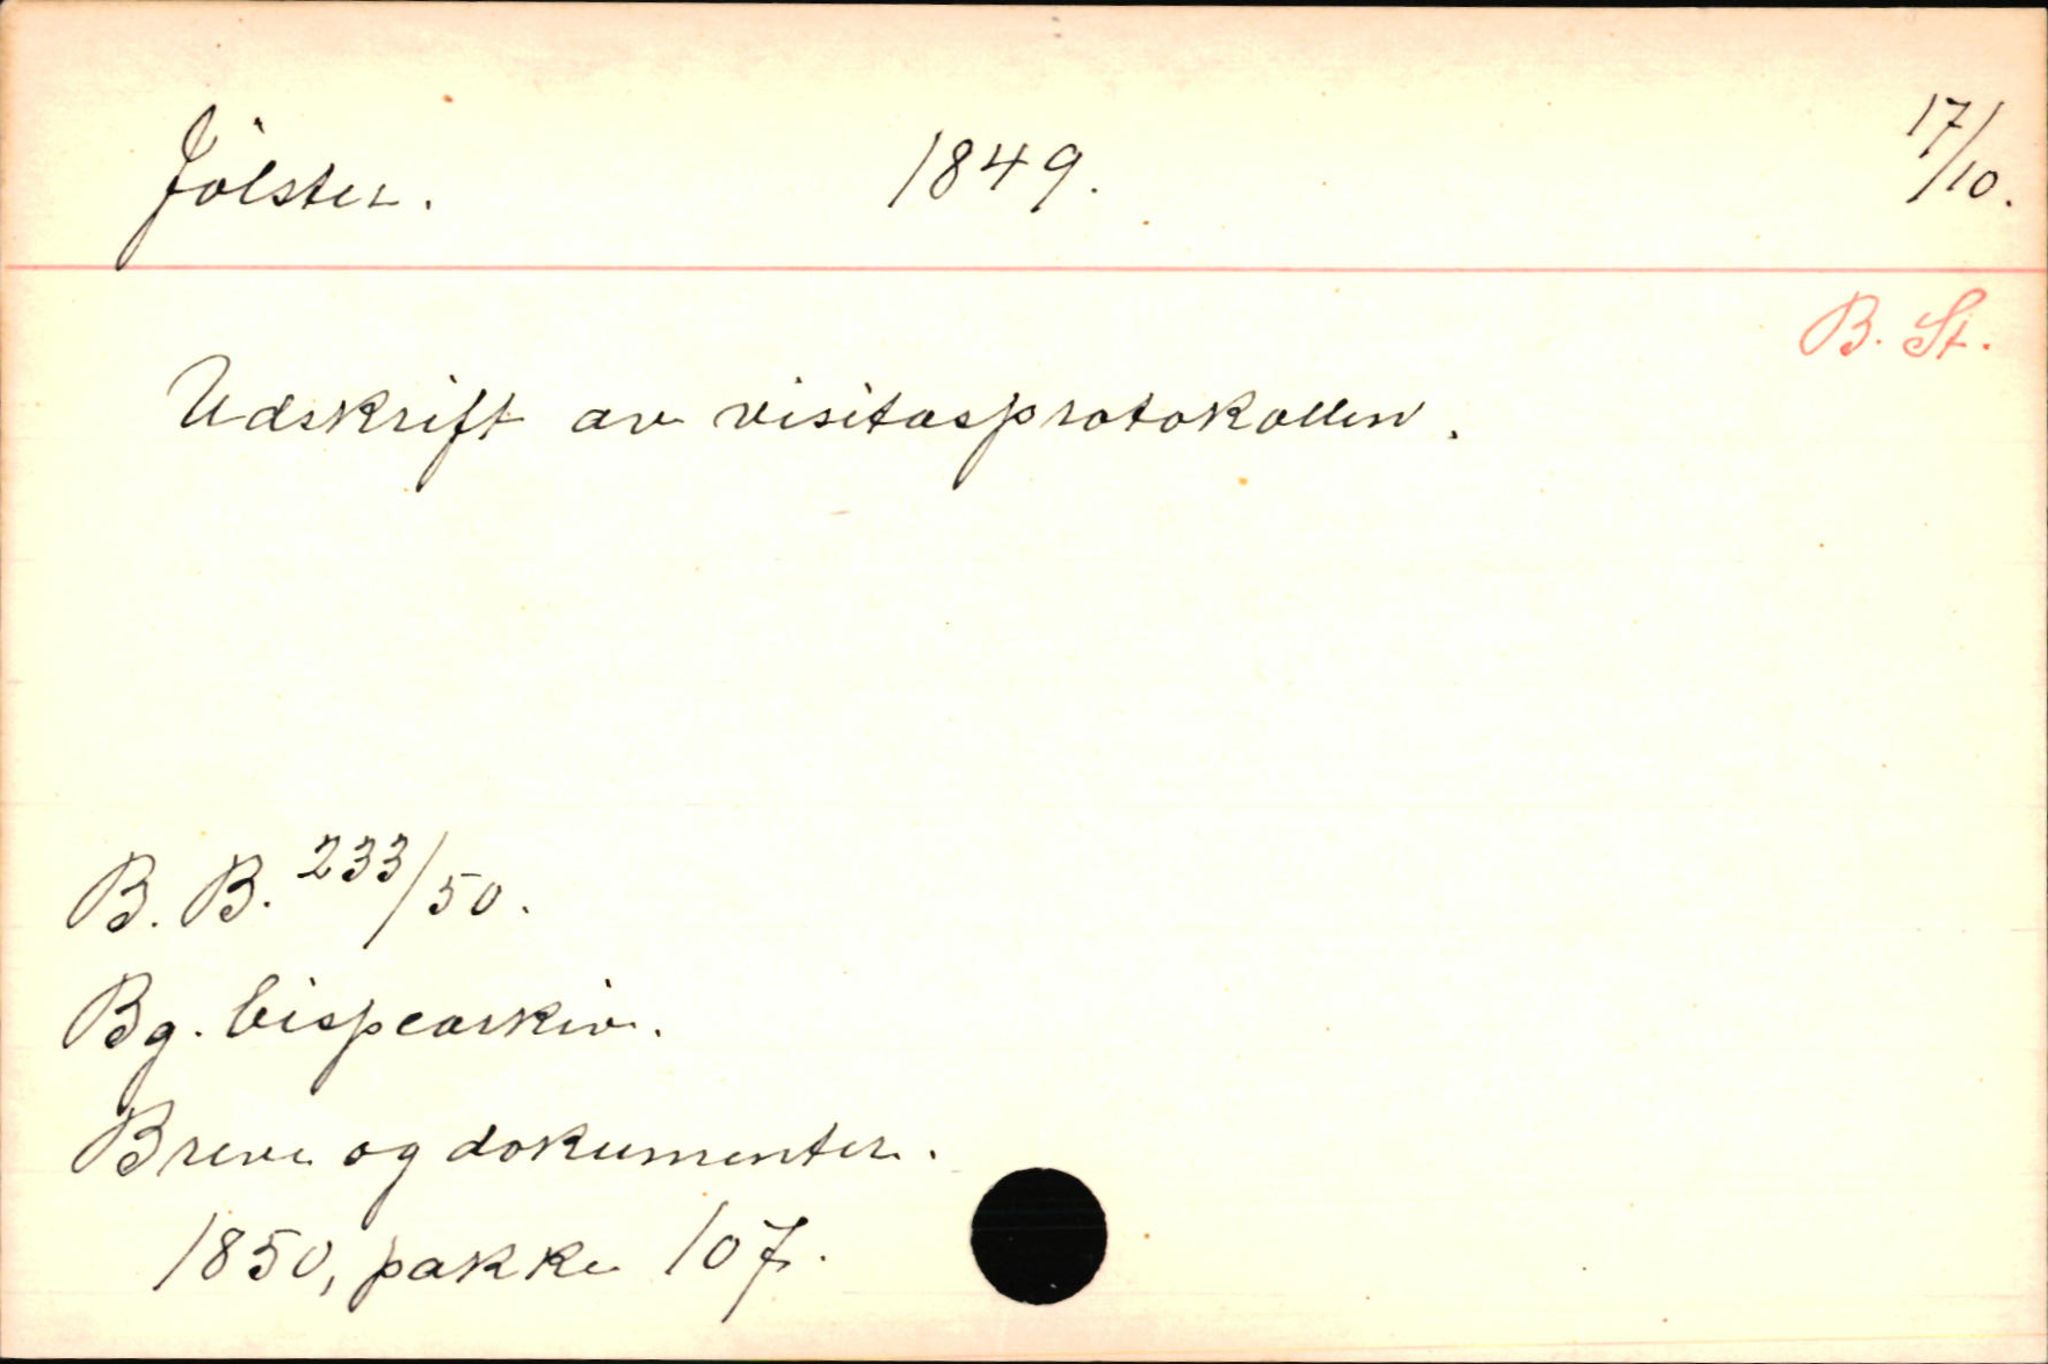 Jölster. 1849. 17/10.
B. St.
Udskrift av visitasprotokollen.
B. B. 233/50.
Bg. bispearkiv.
Breve og dokumenter.
1850, pakke 107.